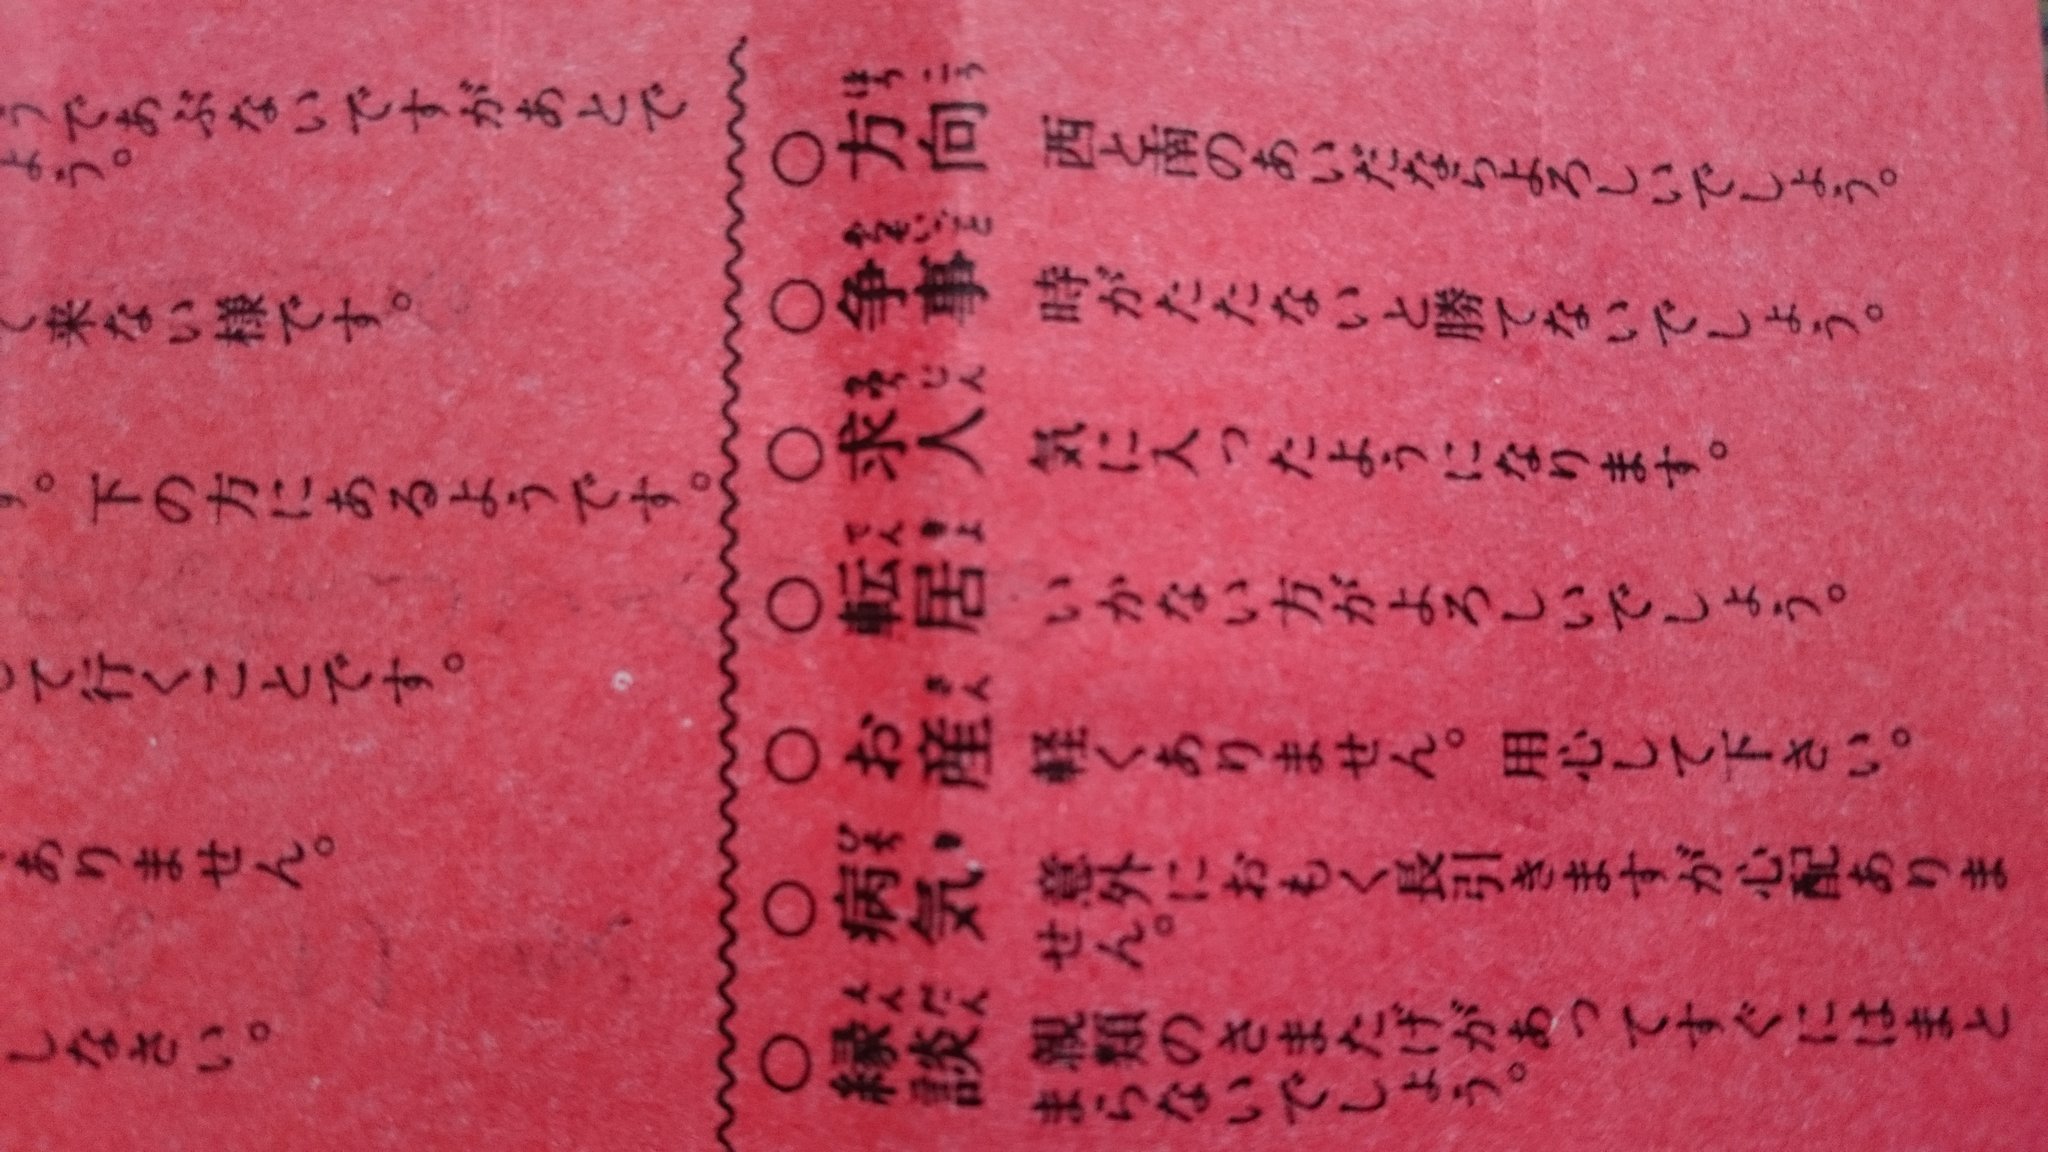 うであぶないですがあとで
よう。
て来ない様です。
す。下の方にあるようです。
して行くことです。
ありません。
しなさい。
○方向 西と南のあいだならよろしいでしょう。
ほうこう
○争事 時がたたないと勝てないでしょう。
○求人 気に入ったようになります。
○転居 いかない方がよろしいでしょう。
てんきょ
○お産 軽くありません。用心して下さい。
さん
○病気 意外におもく長引きますが心配ありま
せん。
○縁談 親類のさまたげがあってすぐにはまと
えんだん
まらないでしょう。